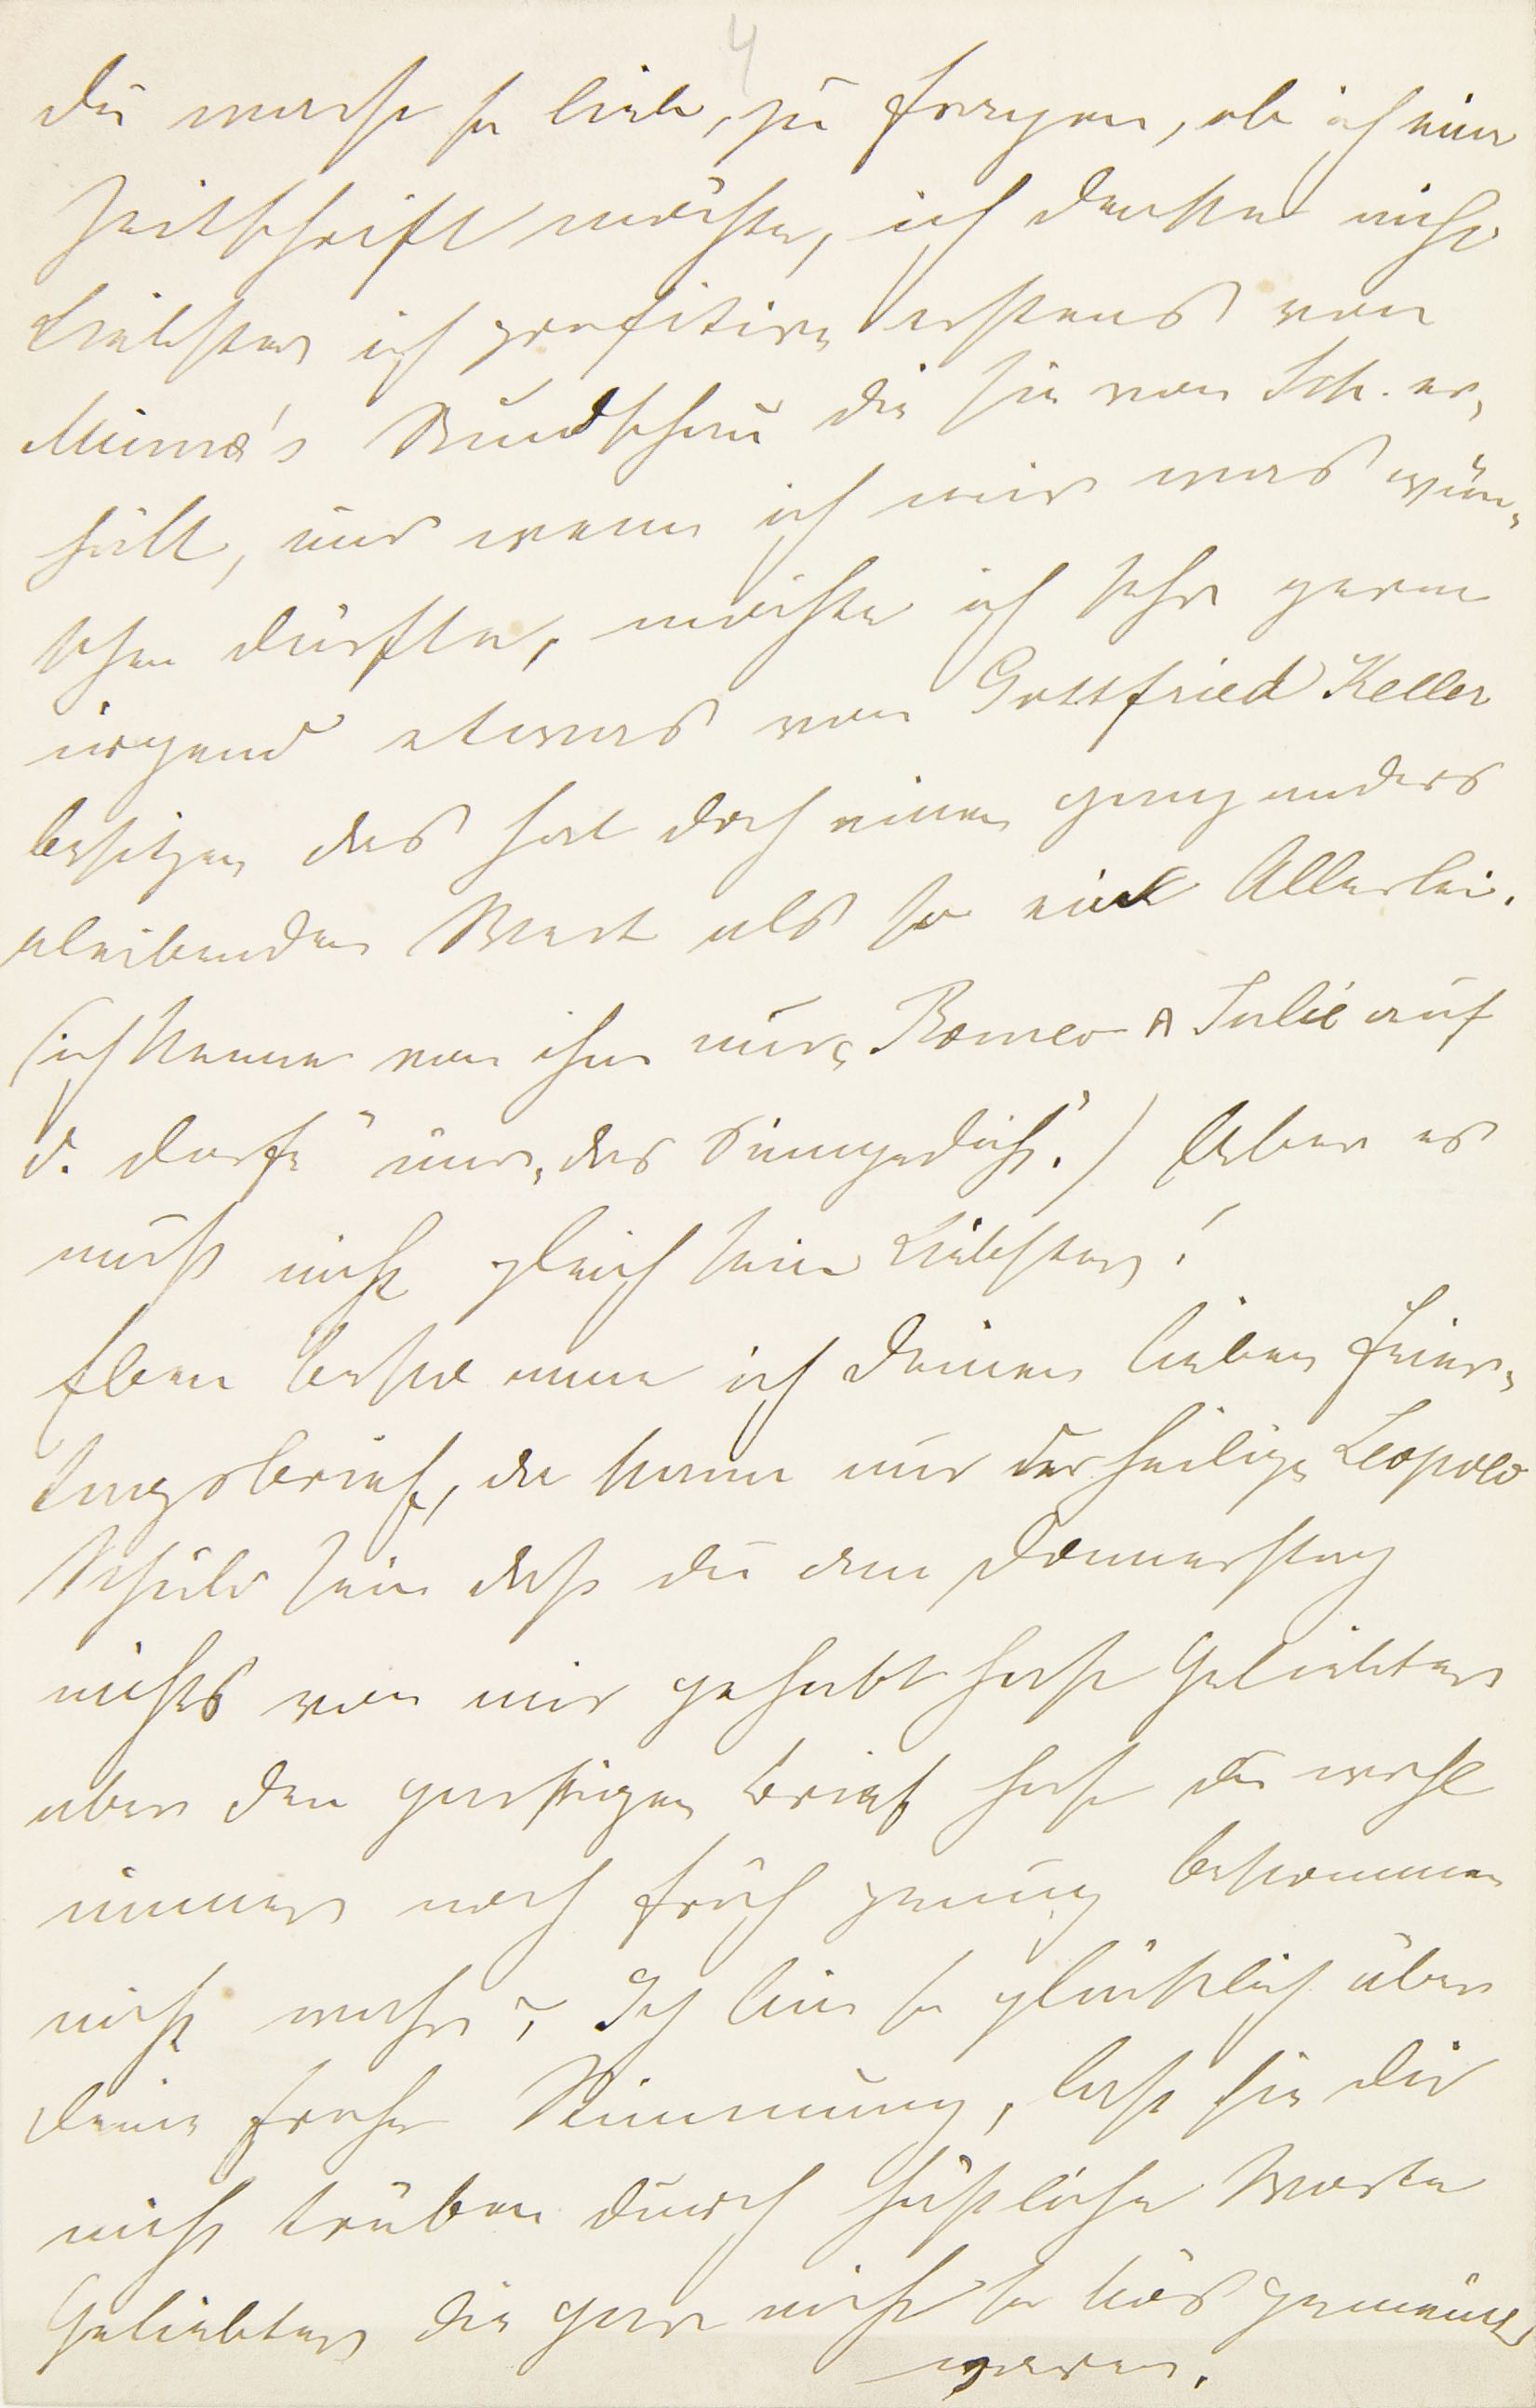 4
Du warst so lieb, zu fragen, ob ich eine
Zeitschrift möchte, ich denke nicht
Liebster ich profitire erstens von
Mima's Rundschau die sie von Sch. er-
hält, und wenn ich mir was wün-
schen dürfte, möchte ich sehr gern
irgend etwas von Gottfried Keller
besitzen das hat doch einen ganz anders
bleibenden Wert als so ein Allerlei.
(ich kenne von ihm nur „Romeo & Julie auf
d. Dorfe" und „das Sinngedicht".) Aber es
muß nicht gleich sein Liebster!
Eben bekomme ich Deinen lieben Feier-
tagsbrief, da kann nur der heilige Leopold
Schuld sein daß du am Donnerstag
nichts von mir gehabt hast Geliebter
aber den garstigen Brief hast du wohl
immer noch früh genug bekommen
nicht wahr? Ich bin so glücklich über
Deine frohe Stimmung, laß sie Dir
nicht trüben durch häßliche Worte
Geliebter die gar nicht so bös gemeint
waren.